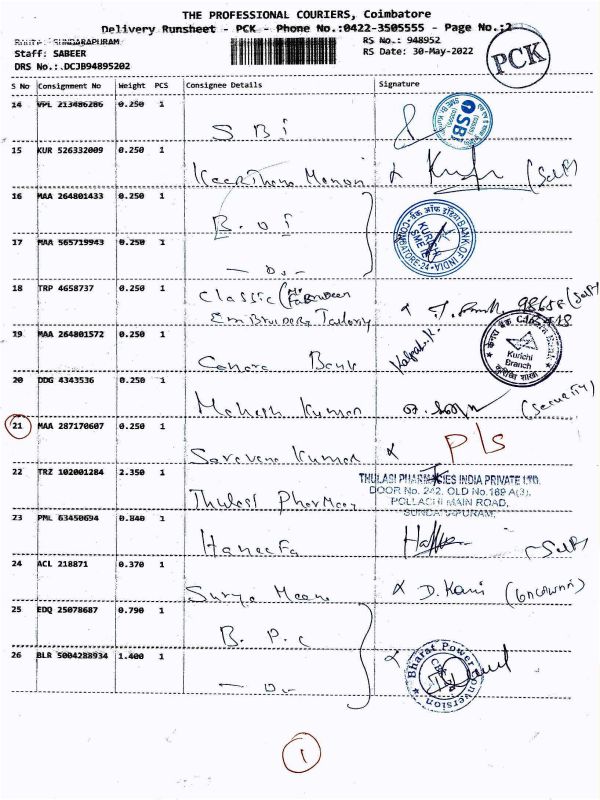 THE PROFESSIONAL COURIERS, Coimbatore
Delivery Runsheet - PCK - Phone No.:0422-3505555 - Page No.:2
Route: SUNDARAPURAM
RS No.: 948952
Staff: SABEER
RS Date: 30-May-2022
DRS No.:.DCJB94895202
PCK
S No Consignment No Weight PCS Consignee Details Signature
14 VPL 213486286 0.250 1
SBI
SBI
15 KUR 526332009 0.250 1
Keerthana Menon (Self)
16 MAA 264801433 0.250 1
B.O.I
बैंक ऑफ इंडिया BANK OF INDIA
KURICHI
COIMBATORE-24
17 MAA 565719943 0.250 1
— Do —
18 TRP 4658737 0.250 1
Classic
Embroidery Tailoring
(Self)
19 MAA 264801572 0.250 1
Canara Bank
केनरा बैंक Canara Bank
Kurichi
Branch
20 DDG 4343536 0.250 1
Mahesh Kumar (Security)
21 MAA 287170607 0.250 1
Saravana Kumar P/S
22 TRZ 102001284 2.350 1
Thulasi Pharmacy
THULASI PHARMACIES INDIA PRIVATE LTD.
DOOR No. 242, OLD No.189 A(3),
POLLACHI MAIN ROAD,
SUNDARAPURAM,
23 PML 63450694 0.840 1
Haneefa (Self)
24 ACL 218871 0.370 1
D. Kani
25 EDQ 25078687 0.790 1
B.P.C
26 BLR 5004288934 1.400 1
— Do —
Bharat Power Conversion
1